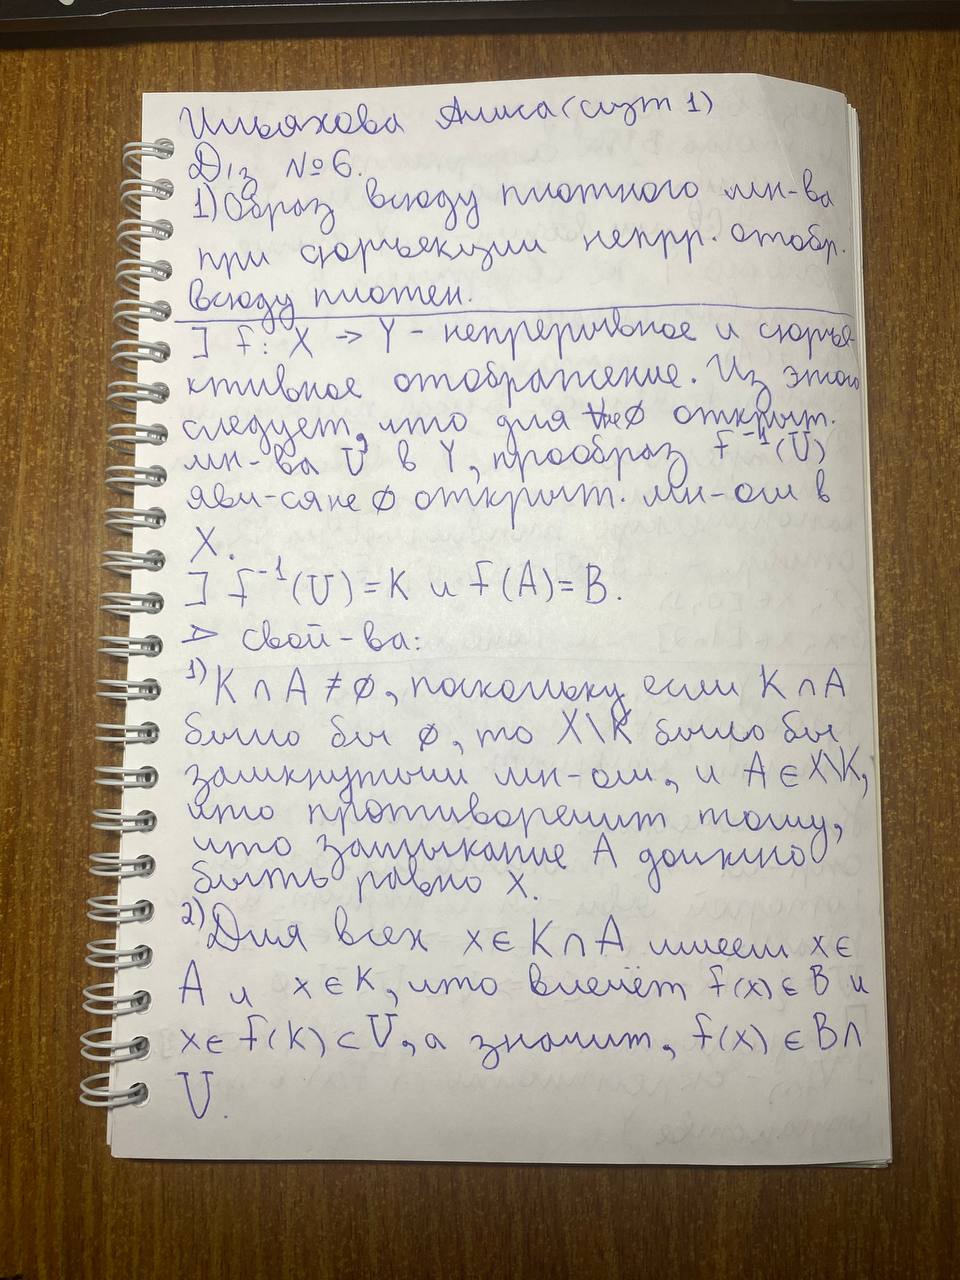 Ильяхова Алиса (сузт 1)
Д/з №6.
1) Образ всюду плотного мн-ва
при сюръекции непрр. отобр.
всюду плотен.
] f: X → Y - непрерывное и сюръе-
ктивное отображение. Из этого
следует, что для ∀не∅ открыт.
мн-ва U в Y, прообраз f⁻¹(U)
явл-ся не ∅ открыт. мн-ом в
X.
] f⁻¹(U)=K и f(A)=B.
⊳ свой-ва:
1) K ∩ A ≠ ∅, поскольку если K ∩ A
было бы ∅, то X\K было бы
замкнутым мн-ом, и A ∈ X\K,
что противоречит тому,
что замыкание A должно
быть равно X.
2) Для всех x ∈ K ∩ A имеем x ∈
A и x ∈ K, что влечёт f(x) ∈ B и
x ∈ f(K) ⊂ U, а значит, f(x) ∈ B∩
U.